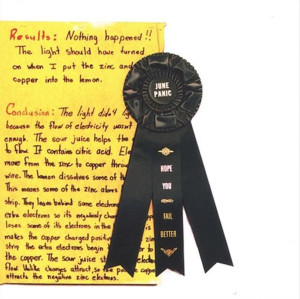 Results: Nothing happened!!
The light should have turned
on when I put the zinc and
copper into the lemon.
Conclusion: The light didn't
because the flow of electricity wasn't
enough. The sour juice helps the
to Flow It contains citric acid.
move from the zinc to copper through
wire. The lemon dissolves some of the
This means some of the zinc atoms
strip. They leave behind some electrons
extra electrons so its negatively
loses some of its electrons in the
makes the copper charged positive
strip the extra electrons begin
the copper. The sour juice
Flow. Unlike charges attract, so the
attracts the negative zinc electrons.
JUNE
PANIC
HOPE
YOU
FAIL
BETTER